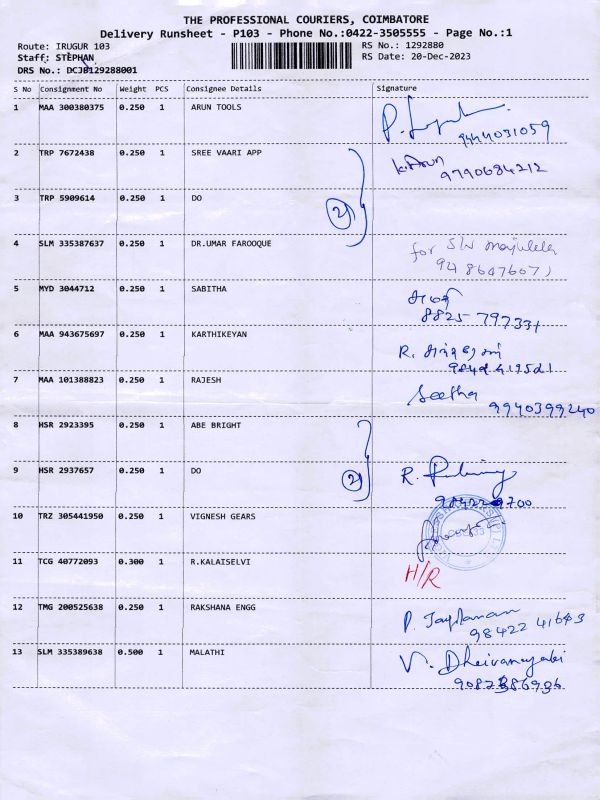 THE PROFESSIONAL COURIERS, COIMBATORE
Delivery Runsheet - P103 - Phone No.:0422-3505555 - Page No.:1
Route: IRUGUR 103 RS No.: 1292880
Staff: STEPHAN RS Date: 20-Dec-2023
DRS No.: DCJB129288001
S No Consignment No Weight PCS Consignee Details Signature
1 MAA 300380375 0.250 1 ARUN TOOLS
9444031059
2 TRP 7672438 0.250 1 SREE VAARI APP K. Arun
9790684212
3 TRP 5909614 0.250 1 DO
4 SLM 335387637 0.250 1 DR.UMAR FAROOQUE for
5 MYD 3044712 0.250 1 SABITHA
8825 797331
6 MAA 943675697 0.250 1 KARTHIKEYAN R.
7 MAA 101388823 0.250 1 RAJESH Seetha
9940399240
8 HSR 2923395 0.250 1 ABE BRIGHT
9 HSR 2937657 0.250 1 DO R.
10 TRZ 305441950 0.250 1 VIGNESH GEARS
11 TCG 40772093 0.300 1 R.KALAISELVI H/R
12 TMG 200525638 0.250 1 RAKSHANA ENGG P.
98422 41643
13 SLM 335389638 0.500 1 MALATHI V. Dheivanayaki